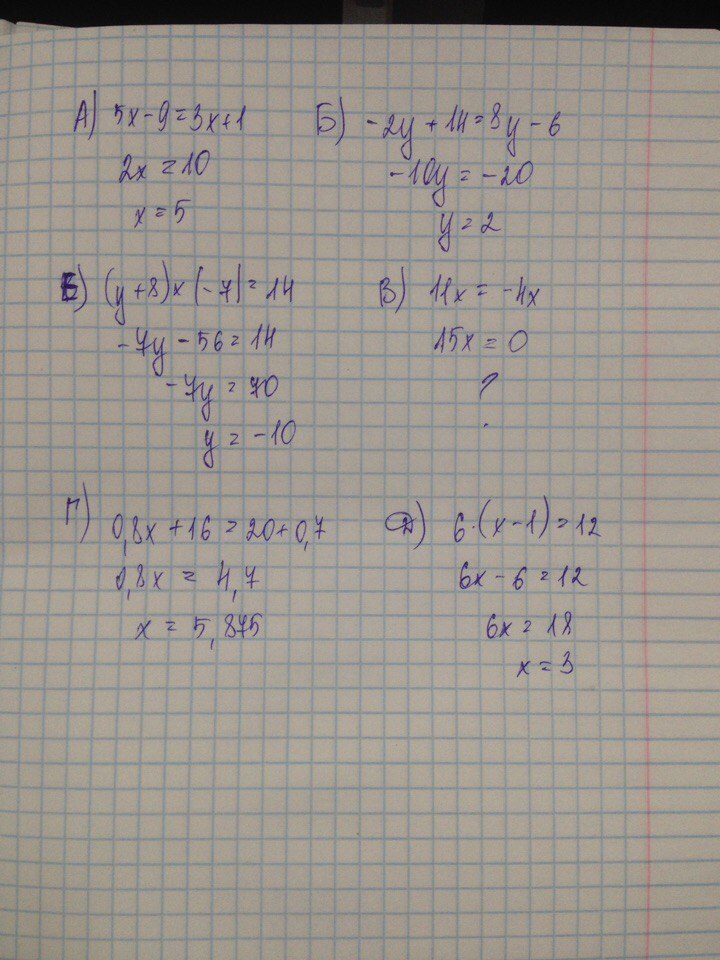 А) 5x-9=3x+1
2x=10
x=5
Б) -2y+14=8y-6
-10y=-20
y=2
Е) (y+8)×(-7)=14
-7y-56=14
-7y=70
y=-10
В) 11x=-4x
15x=0
?
Г) 0,8x+16=20+0,7
0,8x=4,7
x=5,875
Д) 6·(x-1)=12
6x-6=12
6x=18
x=3